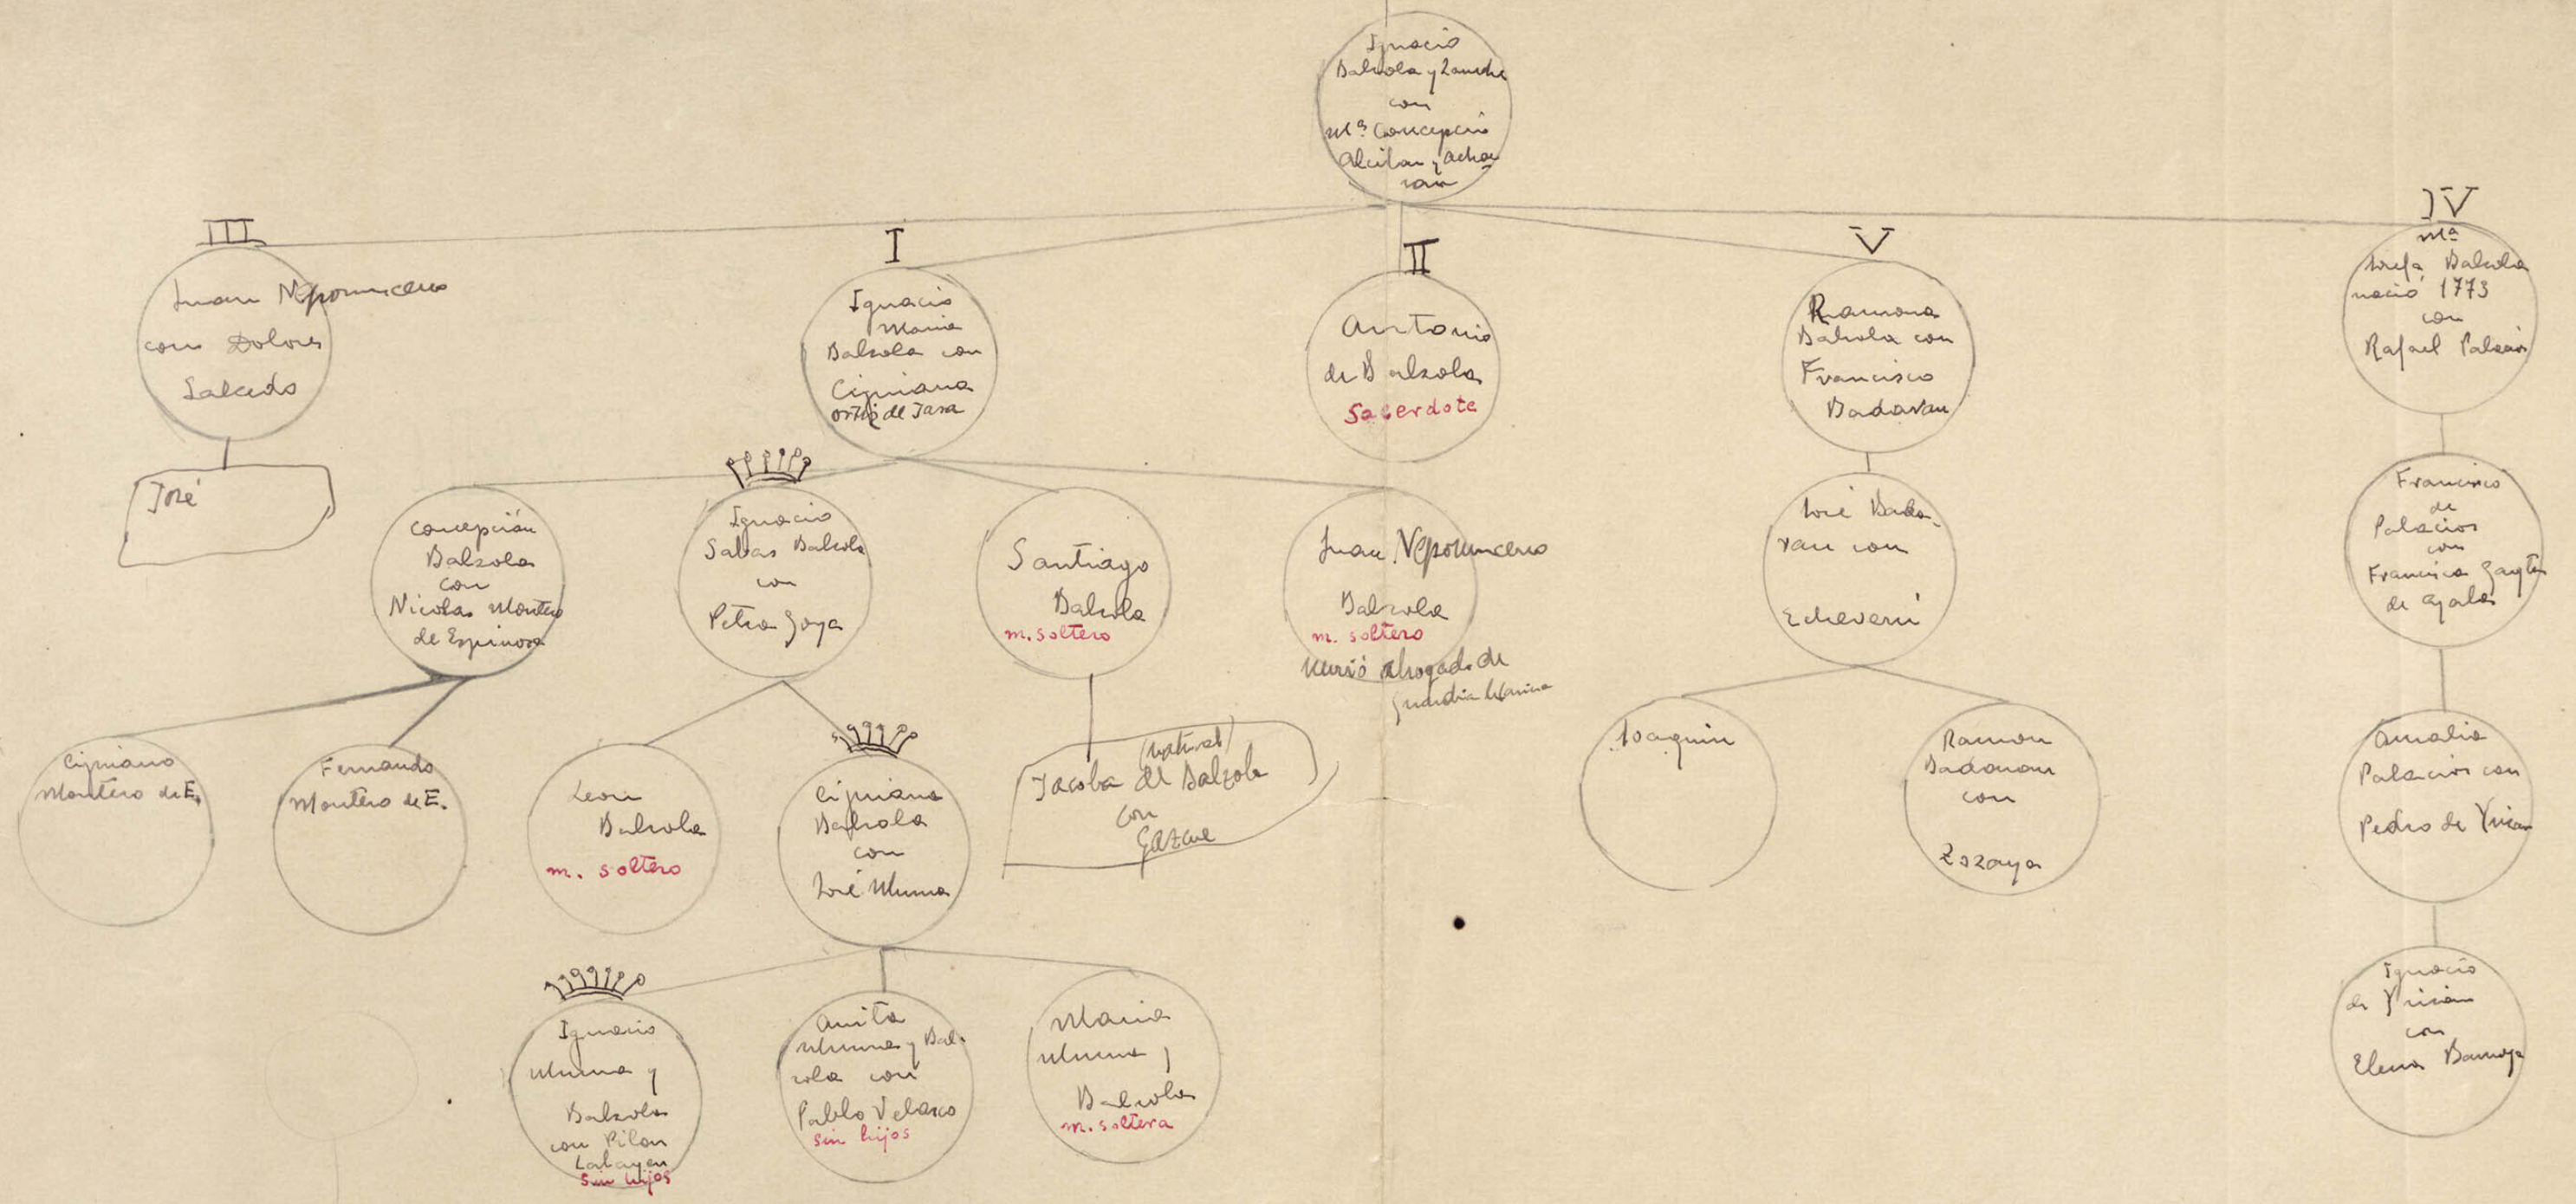 Ignacio
Balzola y
con
Mª Concepción
Alcibar y Achar
rain
III
Juan Nepomuceno
con Dolores
Salcedo
I
Ignacio
Maria
Balzola con
Cipriana
Ortiz de Tasa
II
Antonio
de Balzola
Sacerdote
V
Ramona
Balzola con
Francisco
Badaran
IV
Mª
Josefa Balzola
nació 1773
con
Rafael Palacios
José
Concepción
Balzola
con
Nicolas Montero
de Espinosa
Ignacio
Sabas Balzola
con
Petra Goya
Santiago
Balzola
m. soltero
Juan Nepomuceno
Balzola
m. soltero
Murió ahogado de
guardia Marina
José Bada-
ran con
Echeverri
Francisco
de
Palacios
con
Francisca Gaytan
de Ayala
Cipriano
Montero de E.
Fernando
Montero de E.
Leon
Balzola
m. soltero
Cipriana
Balzola
con
José Munoa
(natural)
Jacoba de Balzola
con
Gazcue
Joaquin
Ramon
Badaran
con
Zozaya
Amalia
Palacios con
Pedro de Yrizar
Ignacio
Munoa y
Balzola
con Pilar
Labayen
sin hijos
Anita
Munoa y Bal-
zola con
Pablo Velasco
sin hijos
Maria
Munoa y
Balzola
m. soltera
Ignacio
de Yrizar
con
Elena